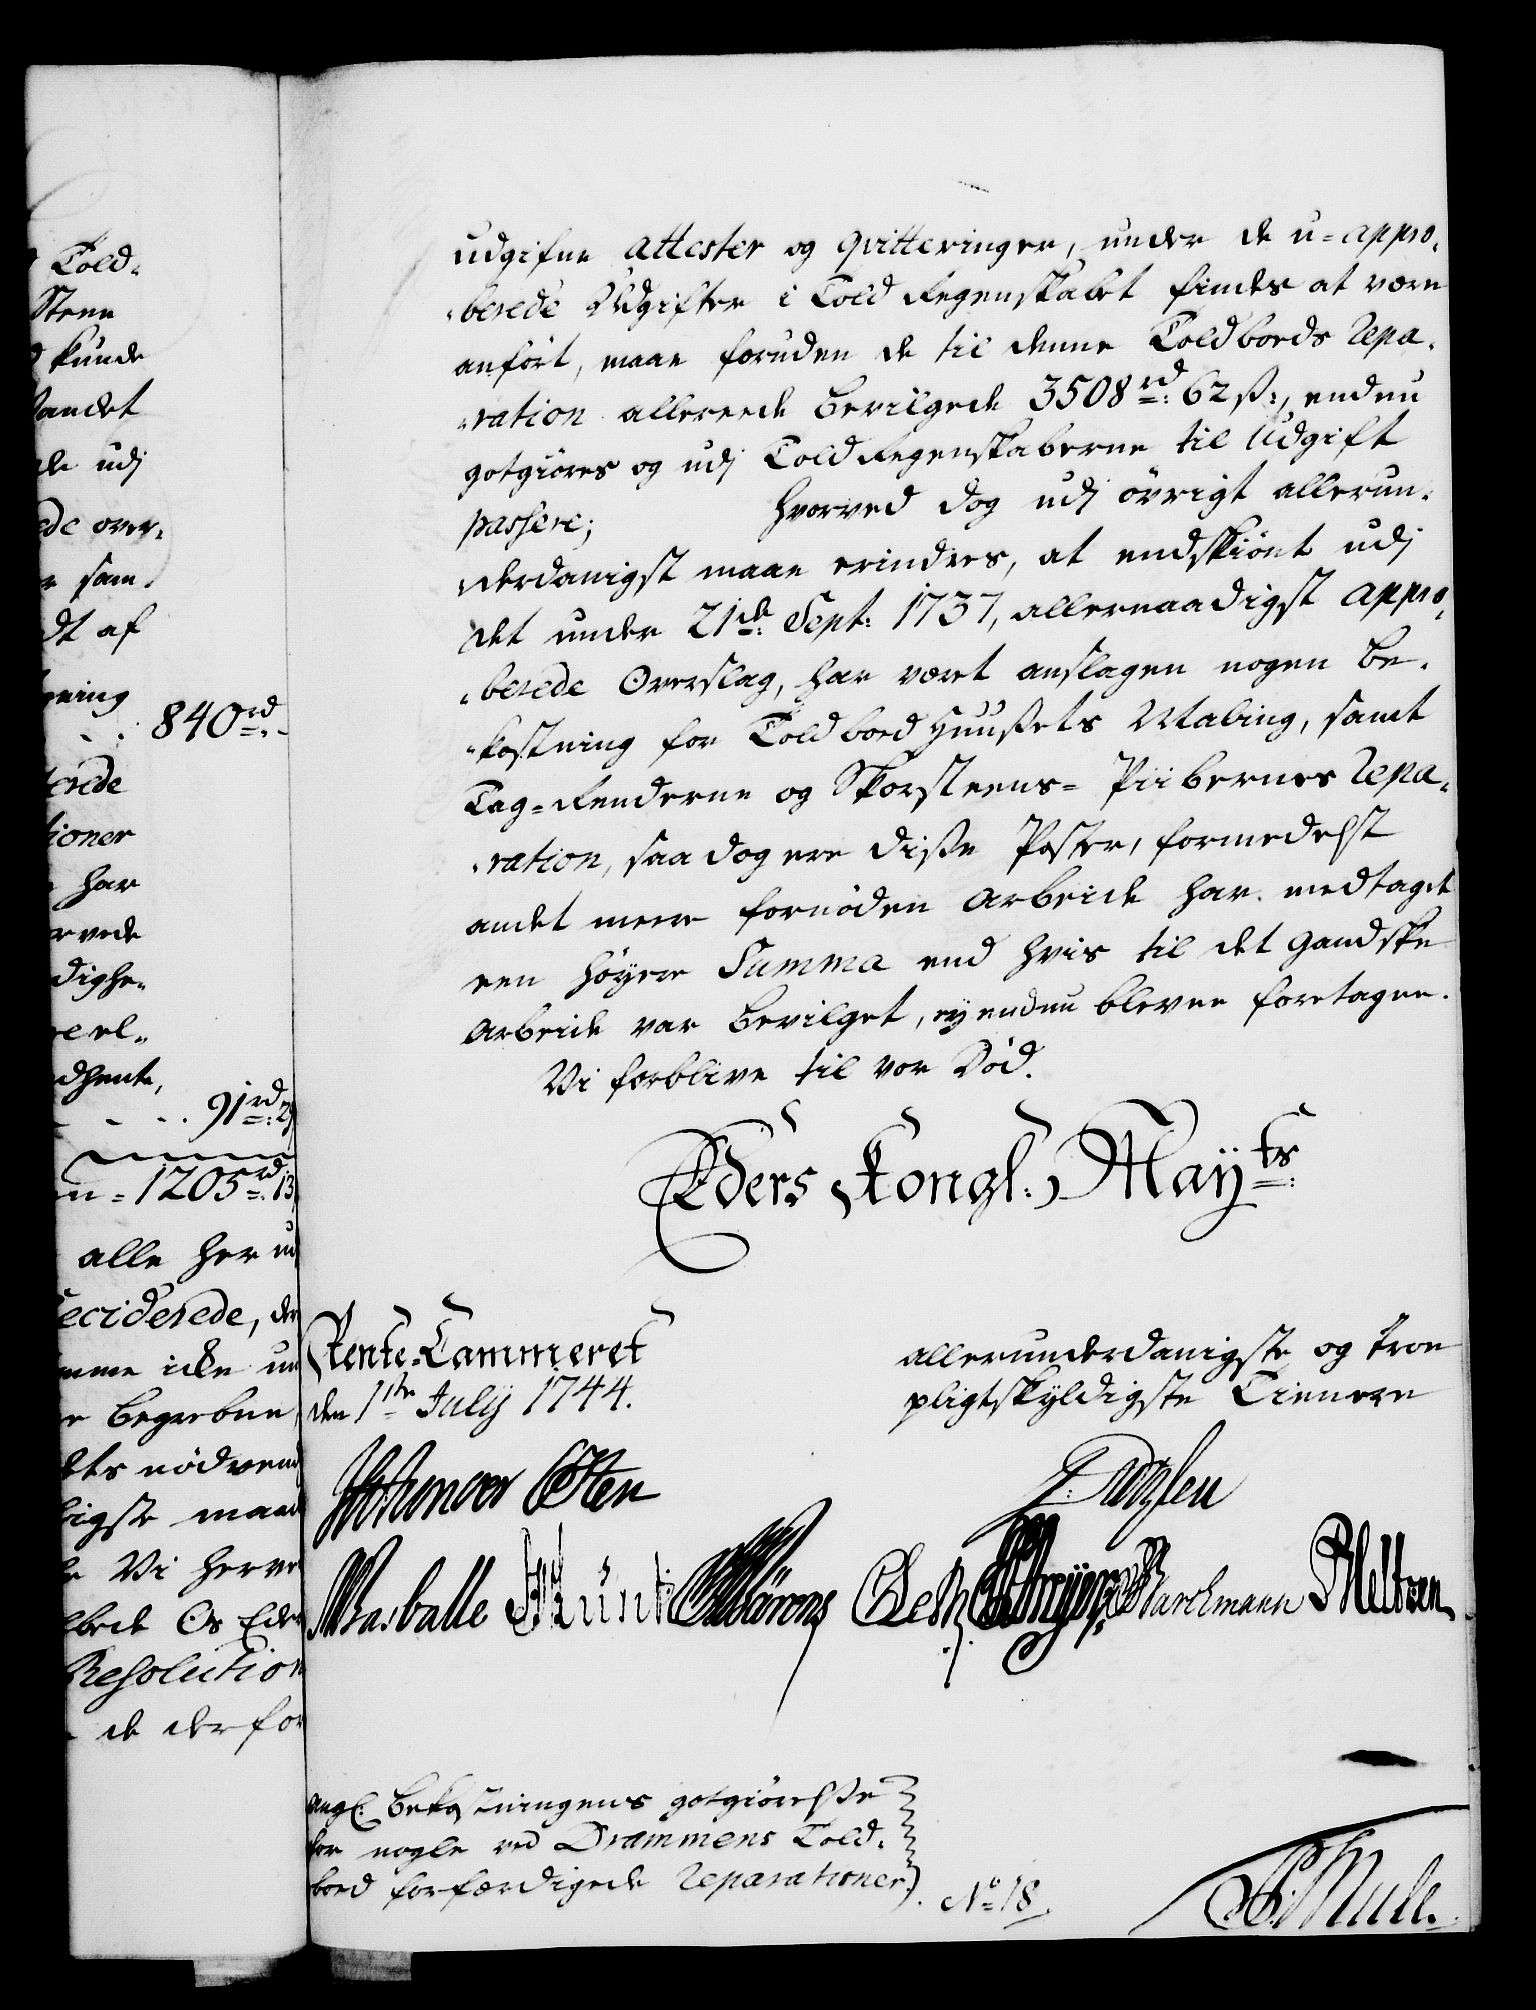 Told-
Steen
kunde
andet
de udj
ede over-
sam-
dt af
ning
840rd -
erede
tioner
har
dighe-
91rd: 2
1205rd: 13
alle her u
decideede, de
begrebne
ets nödven
ligste maa
Vi herve
Os Ede
Resolution
de derfor
udgifne Attester og qvitteringer, under de u-appro-
-berede Udgifter i Told Regenskabet findes at være
anfört, maae foruden de til denne Toldboeds Repa-
-ration allereede bevilgede 3508rd: 62 ß:, endnu
gotgiöres og udj Told Regenskaberne til Udgift
passere; Hvorved dog udj övrigt allerun-
-derdanigst maae erindres, at endskiönt udj
det under 21de: Sept: 1737, allernaadigst appro-
-berede Overslag, har været anslagen nogen be-
-kostning for Toldboed Huußets Mahling, samt
Tag-Renderne og Skorsteens-Piibernes Repa-
-ration, saa dog ere diße Poster, formedelst
andet meere fornöden Arbeide har medtaget
een höyere Summa end hvis til det gandske
Arbeide var bevilget, ey endnu blevne foretagne.
Vi forblive til vor Död.
Eders Kongl: Mayts:
Rente-Cammeret
den 1ste July 1744.
allerunderdanigste og troe
pligtskyldigste Tienere
Masballe
Barchmann Meltzen
ang: bekostningens gotgiörelße
for nogle ved Drammens Told-
boed forfærdigede Reparationer.
No 18.